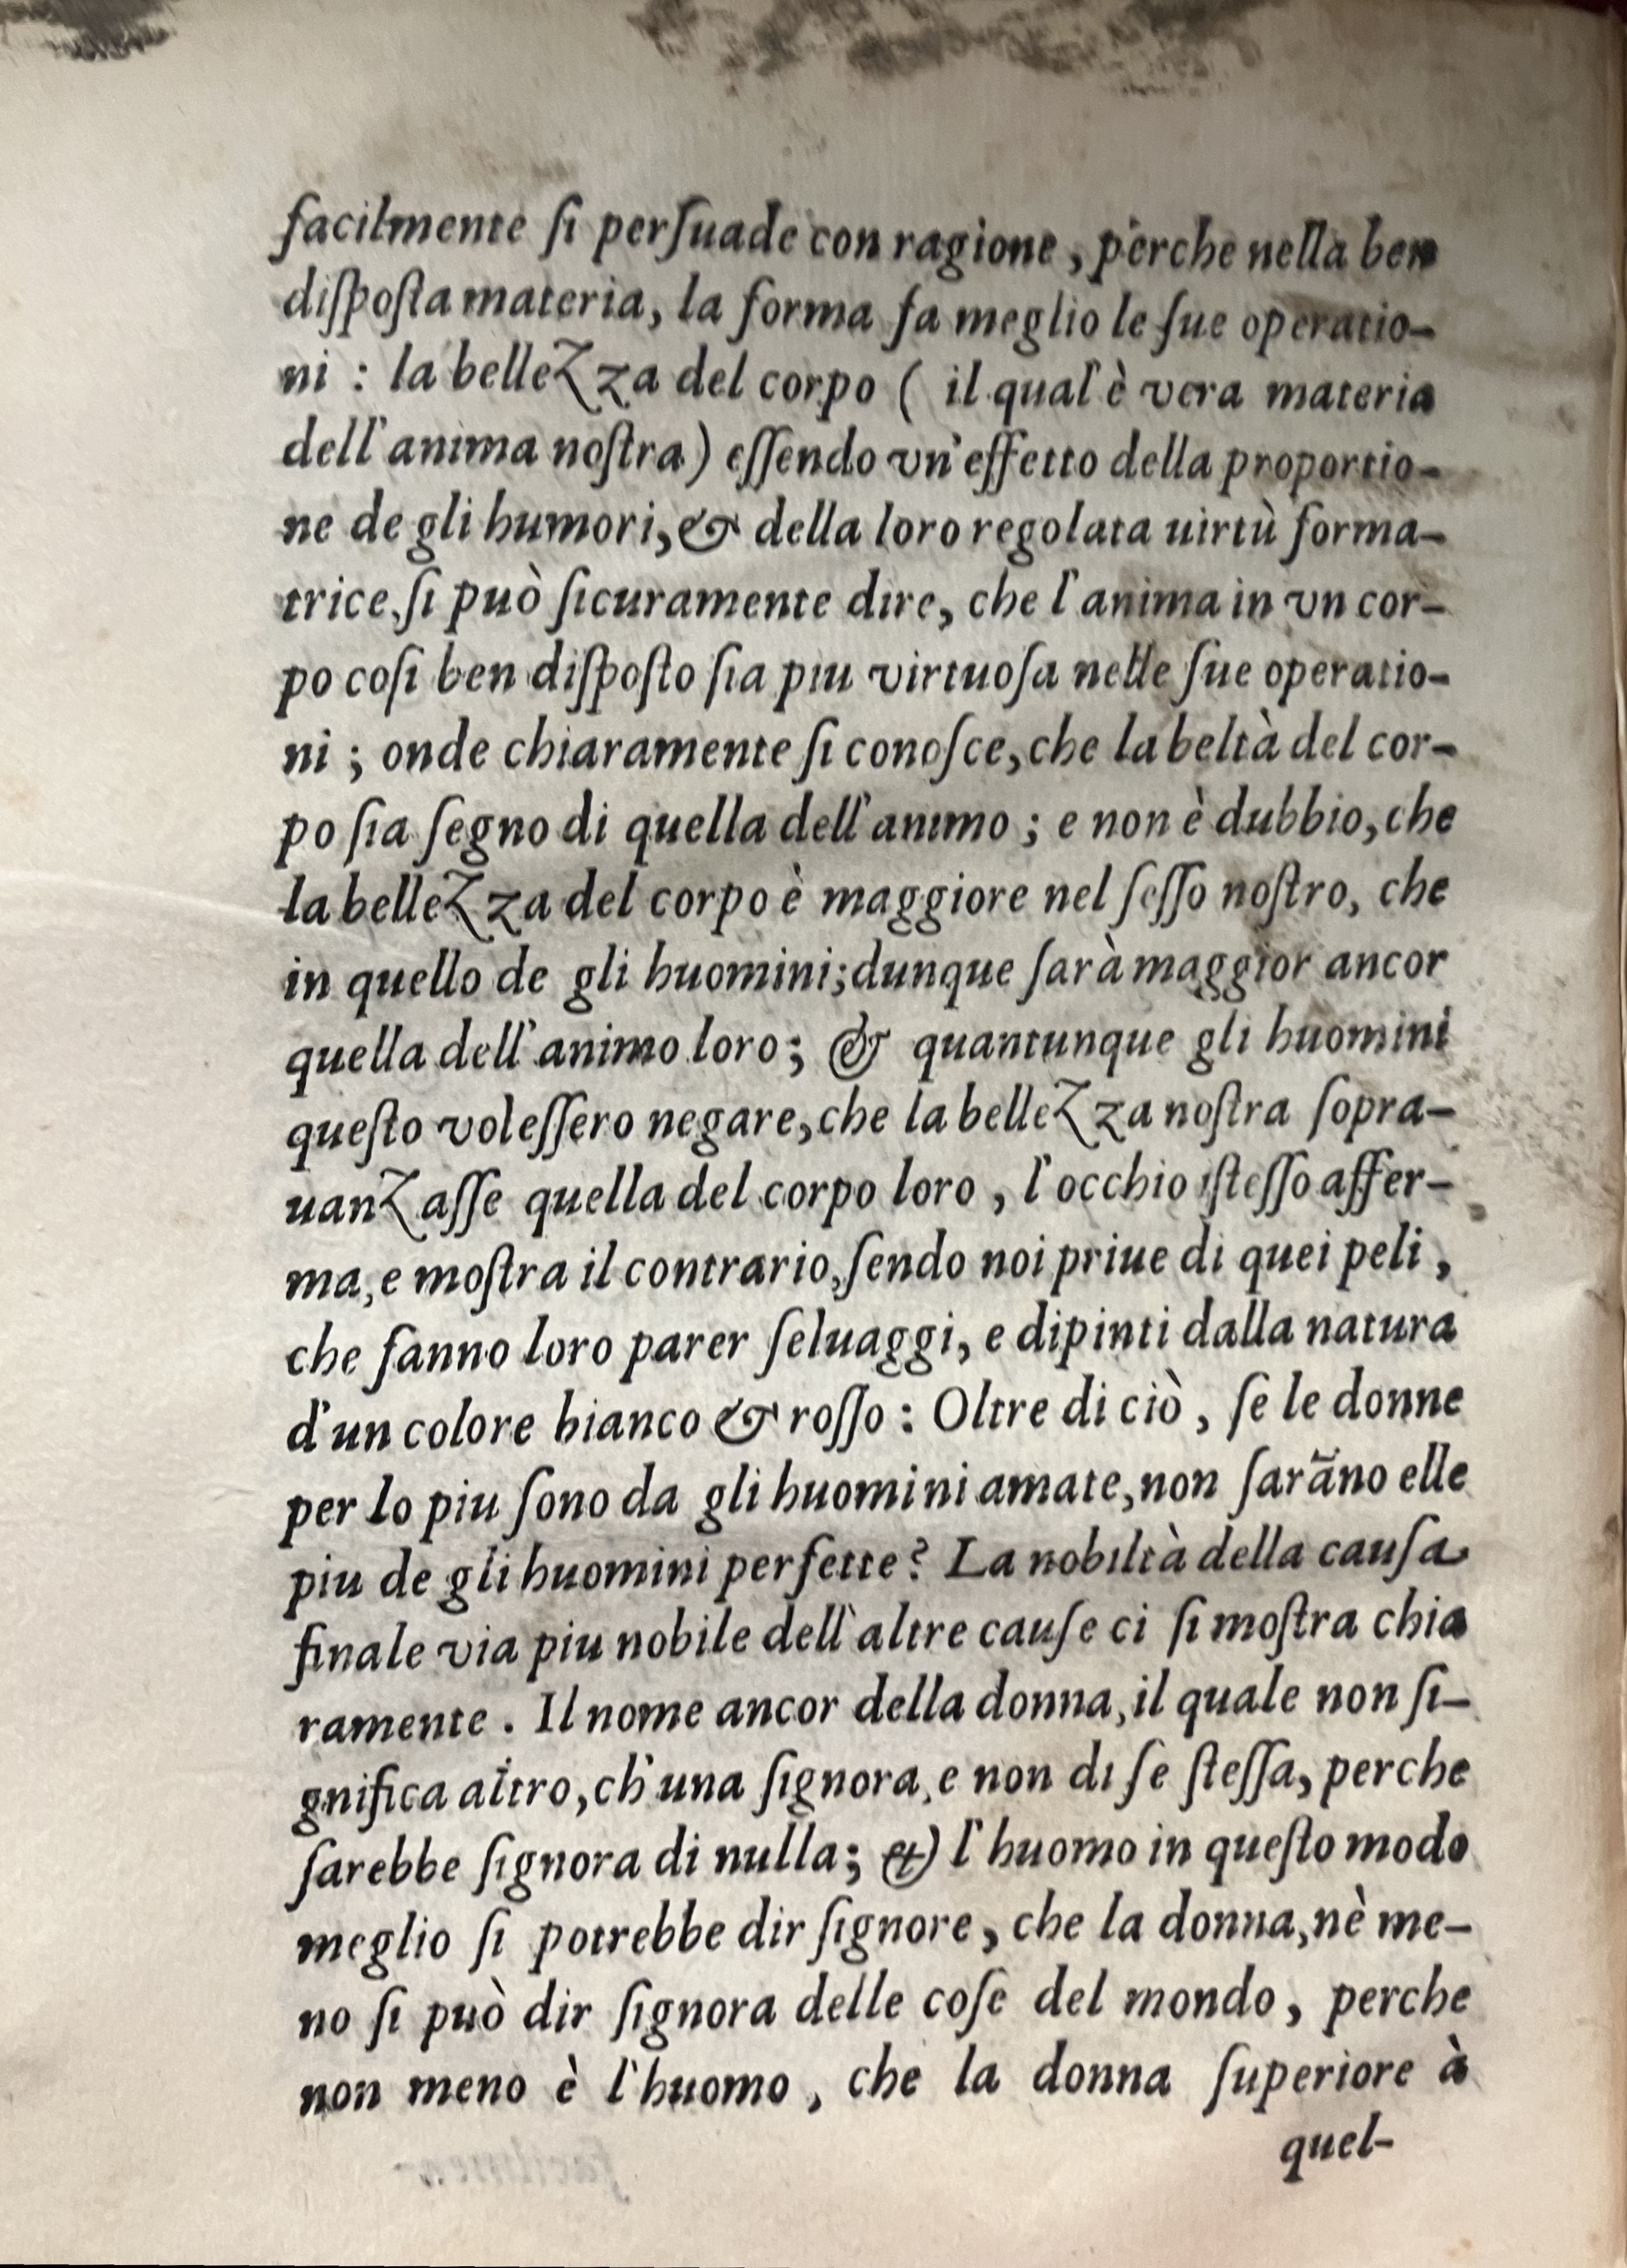 facilmente ſi perſuade con ragione, perche nella ben
diſpoſta materia, la forma fa meglio le ſue operatio-
ni : la bellezza del corpo ( il qual'è vera materia
dell'anima noſtra) eſſendo vn'effetto della proportio-
ne de gli humori, & della loro regolata uirtù forma-
trice, ſi può ſicuramente dire, che l'anima in vn cor-
po coſi ben diſpoſto ſia piu virtuoſa nelle ſue operatio-
ni ; onde chiaramente ſi conoſce, che la beltà del cor-
po ſia ſegno di quella dell'animo ; e non è dubbio, che
la bellezza del corpo è maggiore nel ſeſſo noſtro, che
in quello de gli huomini; dunque ſarà maggior ancor
quella dell'animo loro; & quantunque gli huomini
queſto voleſſero negare, che la bellezza noſtra ſopra-
uanzaſſe quella del corpo loro, l'occhio iſteſſo affer-
ma, e moſtra il contrario, ſendo noi priue di quei peli,
che fanno loro parer ſeluaggi, e dipinti dalla natura
d'un colore bianco & roſſo : Oltre di ciò, ſe le donne
per lo piu ſono da gli huomini amate, non ſarãno elle
piu de gli huomini perfette? La nobiltà della cauſa
finale via piu nobile dell'altre cauſe ci ſi moſtra chia
ramente. Il nome ancor della donna, il quale non ſi-
gnifica altro, ch'una ſignora, e non di ſe ſteſſa, perche
ſarebbe ſignora di nulla; & l'huomo in queſto modo
meglio ſi potrebbe dir ſignore, che la donna, nè me-
no ſi può dir ſignora delle coſe del mondo, perche
non meno è l'huomo, che la donna ſuperiore à
quel-